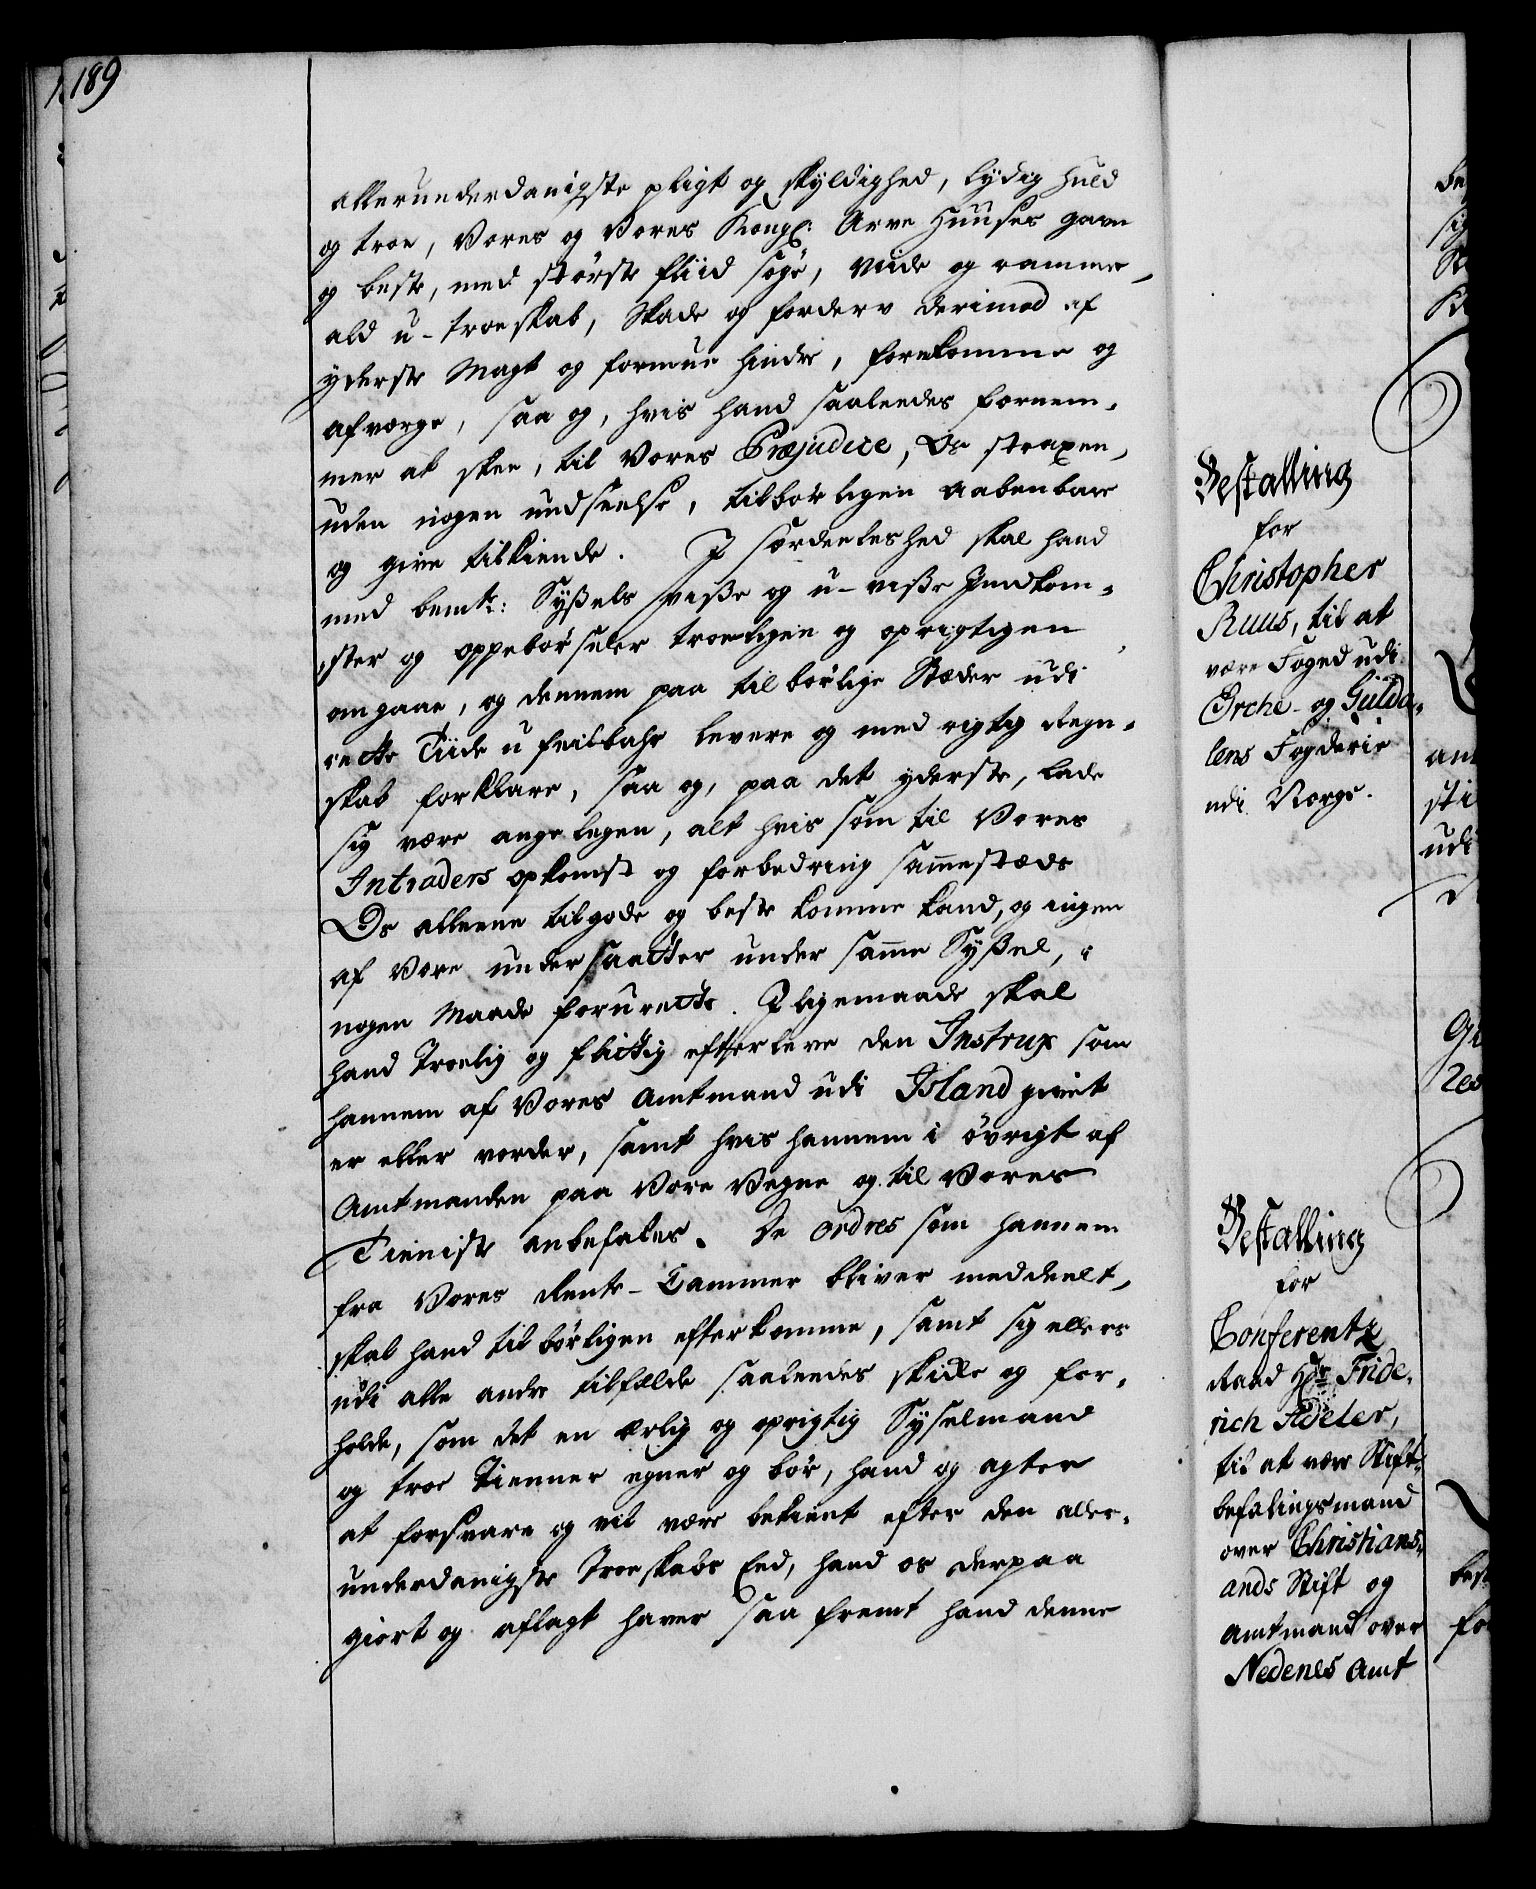 189
allerunderdanigste pligt og skyldighed, lydig huld
og troe, Vores og Vores Kongl: Arve Huuses gavn
og beste, med störste fliid söge, viide og ramme,
ald u-troeskab, Skade og forderv derimod af
yderste Magt og formue hindre, forekomme og
afværge, saa og, hvis hand saaleedes fornem-
mer at skee, til Vores Præjudice, Os straxen,
uden nogen undseelse, tilbörligen aabenbare
og give tilkiende. I særdeeleshed skal hand
med bemte: Syßels viße og u-viße Indkom-
ster og oppebörseler troeligen og oprigtigen
omgaae, og dennem paa tilbörlige Stæder udi
rette Tiide ufeilbahr levere og med rigtig Regn-
skab forklare, saa og, paa det yderste, lade
sig være angelegen, alt hvis som til Vores
Intraders opkomst og forbedring sam̄estæds
Os alleene tilgode og beste komme kand, og ingen
af Vore undersaatter under sam̄e Syßel, i
nogen Maade forurette. I ligemaade skal
hand Troelig og flittig efterleve den Instrux som
hannem af Vores Amtmand udi Island givet
er eller vorder, samt hvis hannem i övrigt af
Amtmanden paa Vore Vegne og til Vores
Tieniste anbefales. De ordres som hannem
fra Vores Rente-Cammer bliver meddeelt,
skal hand tilbörligen efterkomme, samt sig ellers
udi alle andre tilfælde saaleedes skikke og for-
holde, som det en ærlig og oprigtig Syselmand
og troe Tienner egner og bör, hand og agter
at forsvare og vil være bekient efter den aller-
underdanigste Troeskabs Eed, hand os derpaa
giort og aflagt haver saa fremt hand denne
Bestalling
for
Christopher
Ruus, til at
være Foged udi
Orche- og Gülda-
lens Fogderie
udi Norge.
Bestalling
for
Conferentz
Raad Hr Fride-
rich Adeler,
til at være Stift-
befalingsmand
over Christians-
ands Stift og
Amtmand over
Nedenes Amt